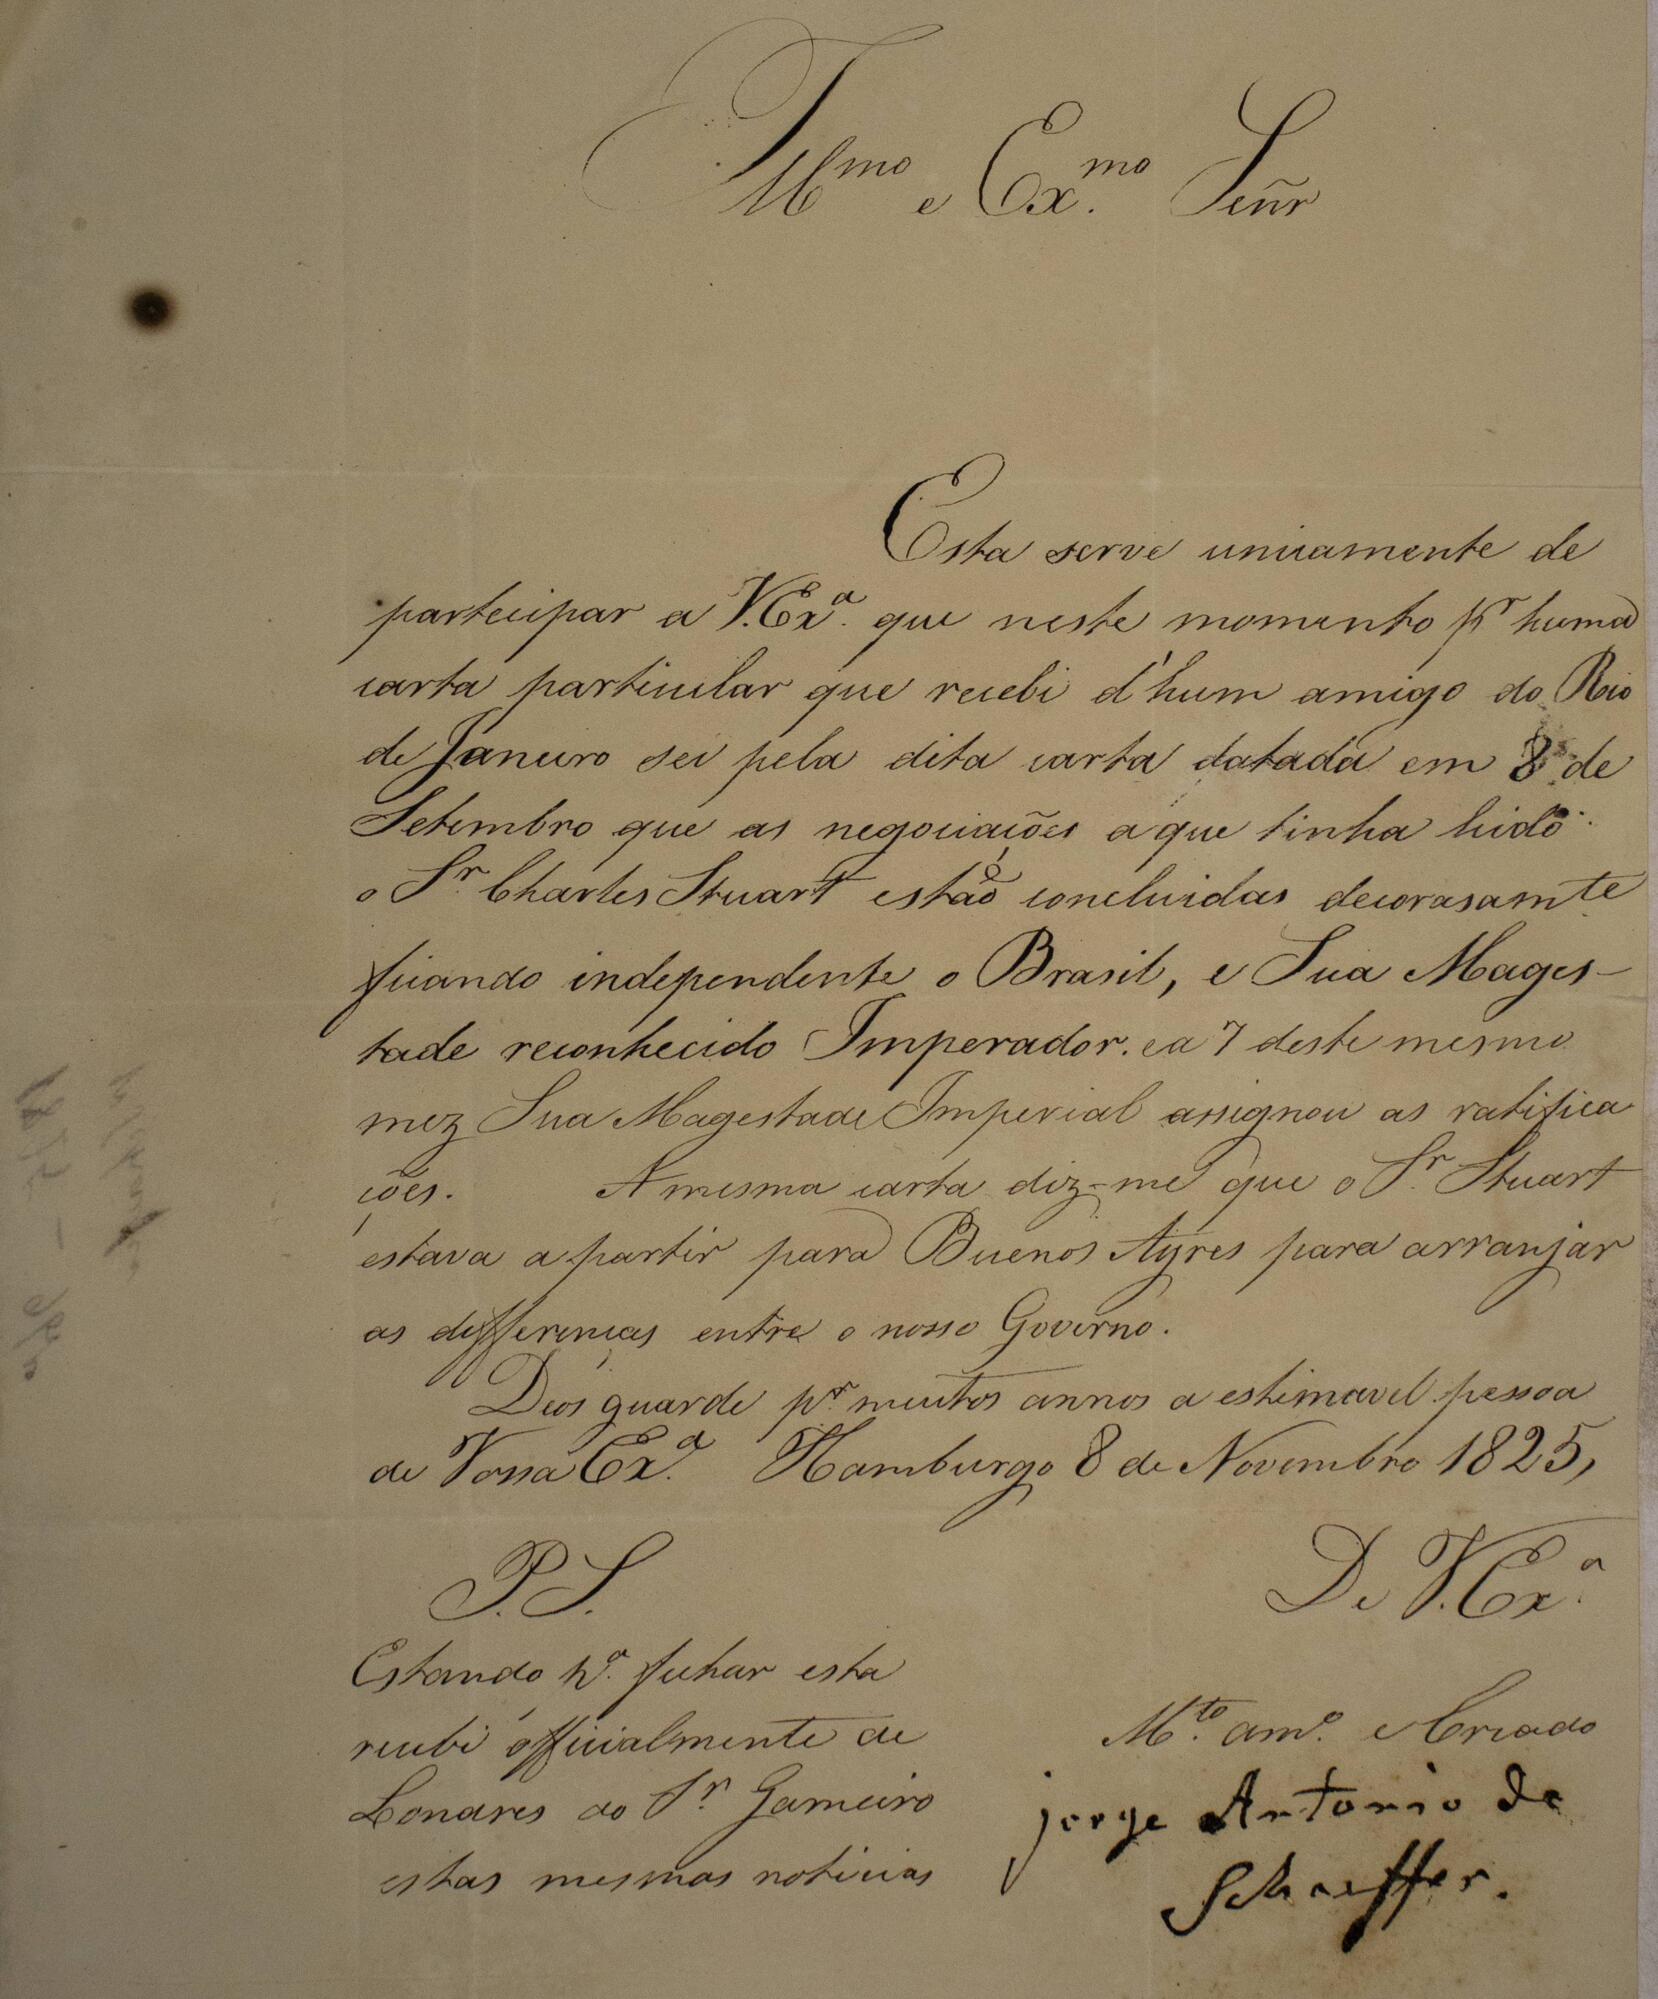 Illmo e Exmo. Señr
Esta serve unicamente de
partecipar a V.Exa. que neste momento pr huma
carta particular que recebi d'hum amigo do Rio
de Janeiro sei pela dita carta datada em 8 de
Setembro que as negociações a que tinha hido
o Sr. Charles Stuart estão concluidas decorasamte
ficando independente o Brasil, e Sua Mages-
tade reconhecido Imperador. ea 7 deste mesmo
mez Sua Magestade Imperial assignou as ratifica
ções. A mesma carta diz-me que o Sr. Stuart
estava a partir para Buenos Ayres para arranjar
as differenças entre o nosso Governo.
Deos guarde pr. muitos annos a estimavel pessoa
de Vossa Exa. Hamburgo 8 de Novembro 1825,
De V.Exa.
P.S.
Estando pa. fechar esta
recebi officialmente de
Londres do Sr. Gameiro
estas mesmas noticias
Mto. amo. e Criado
jorge Antonio de
Schaeffer.